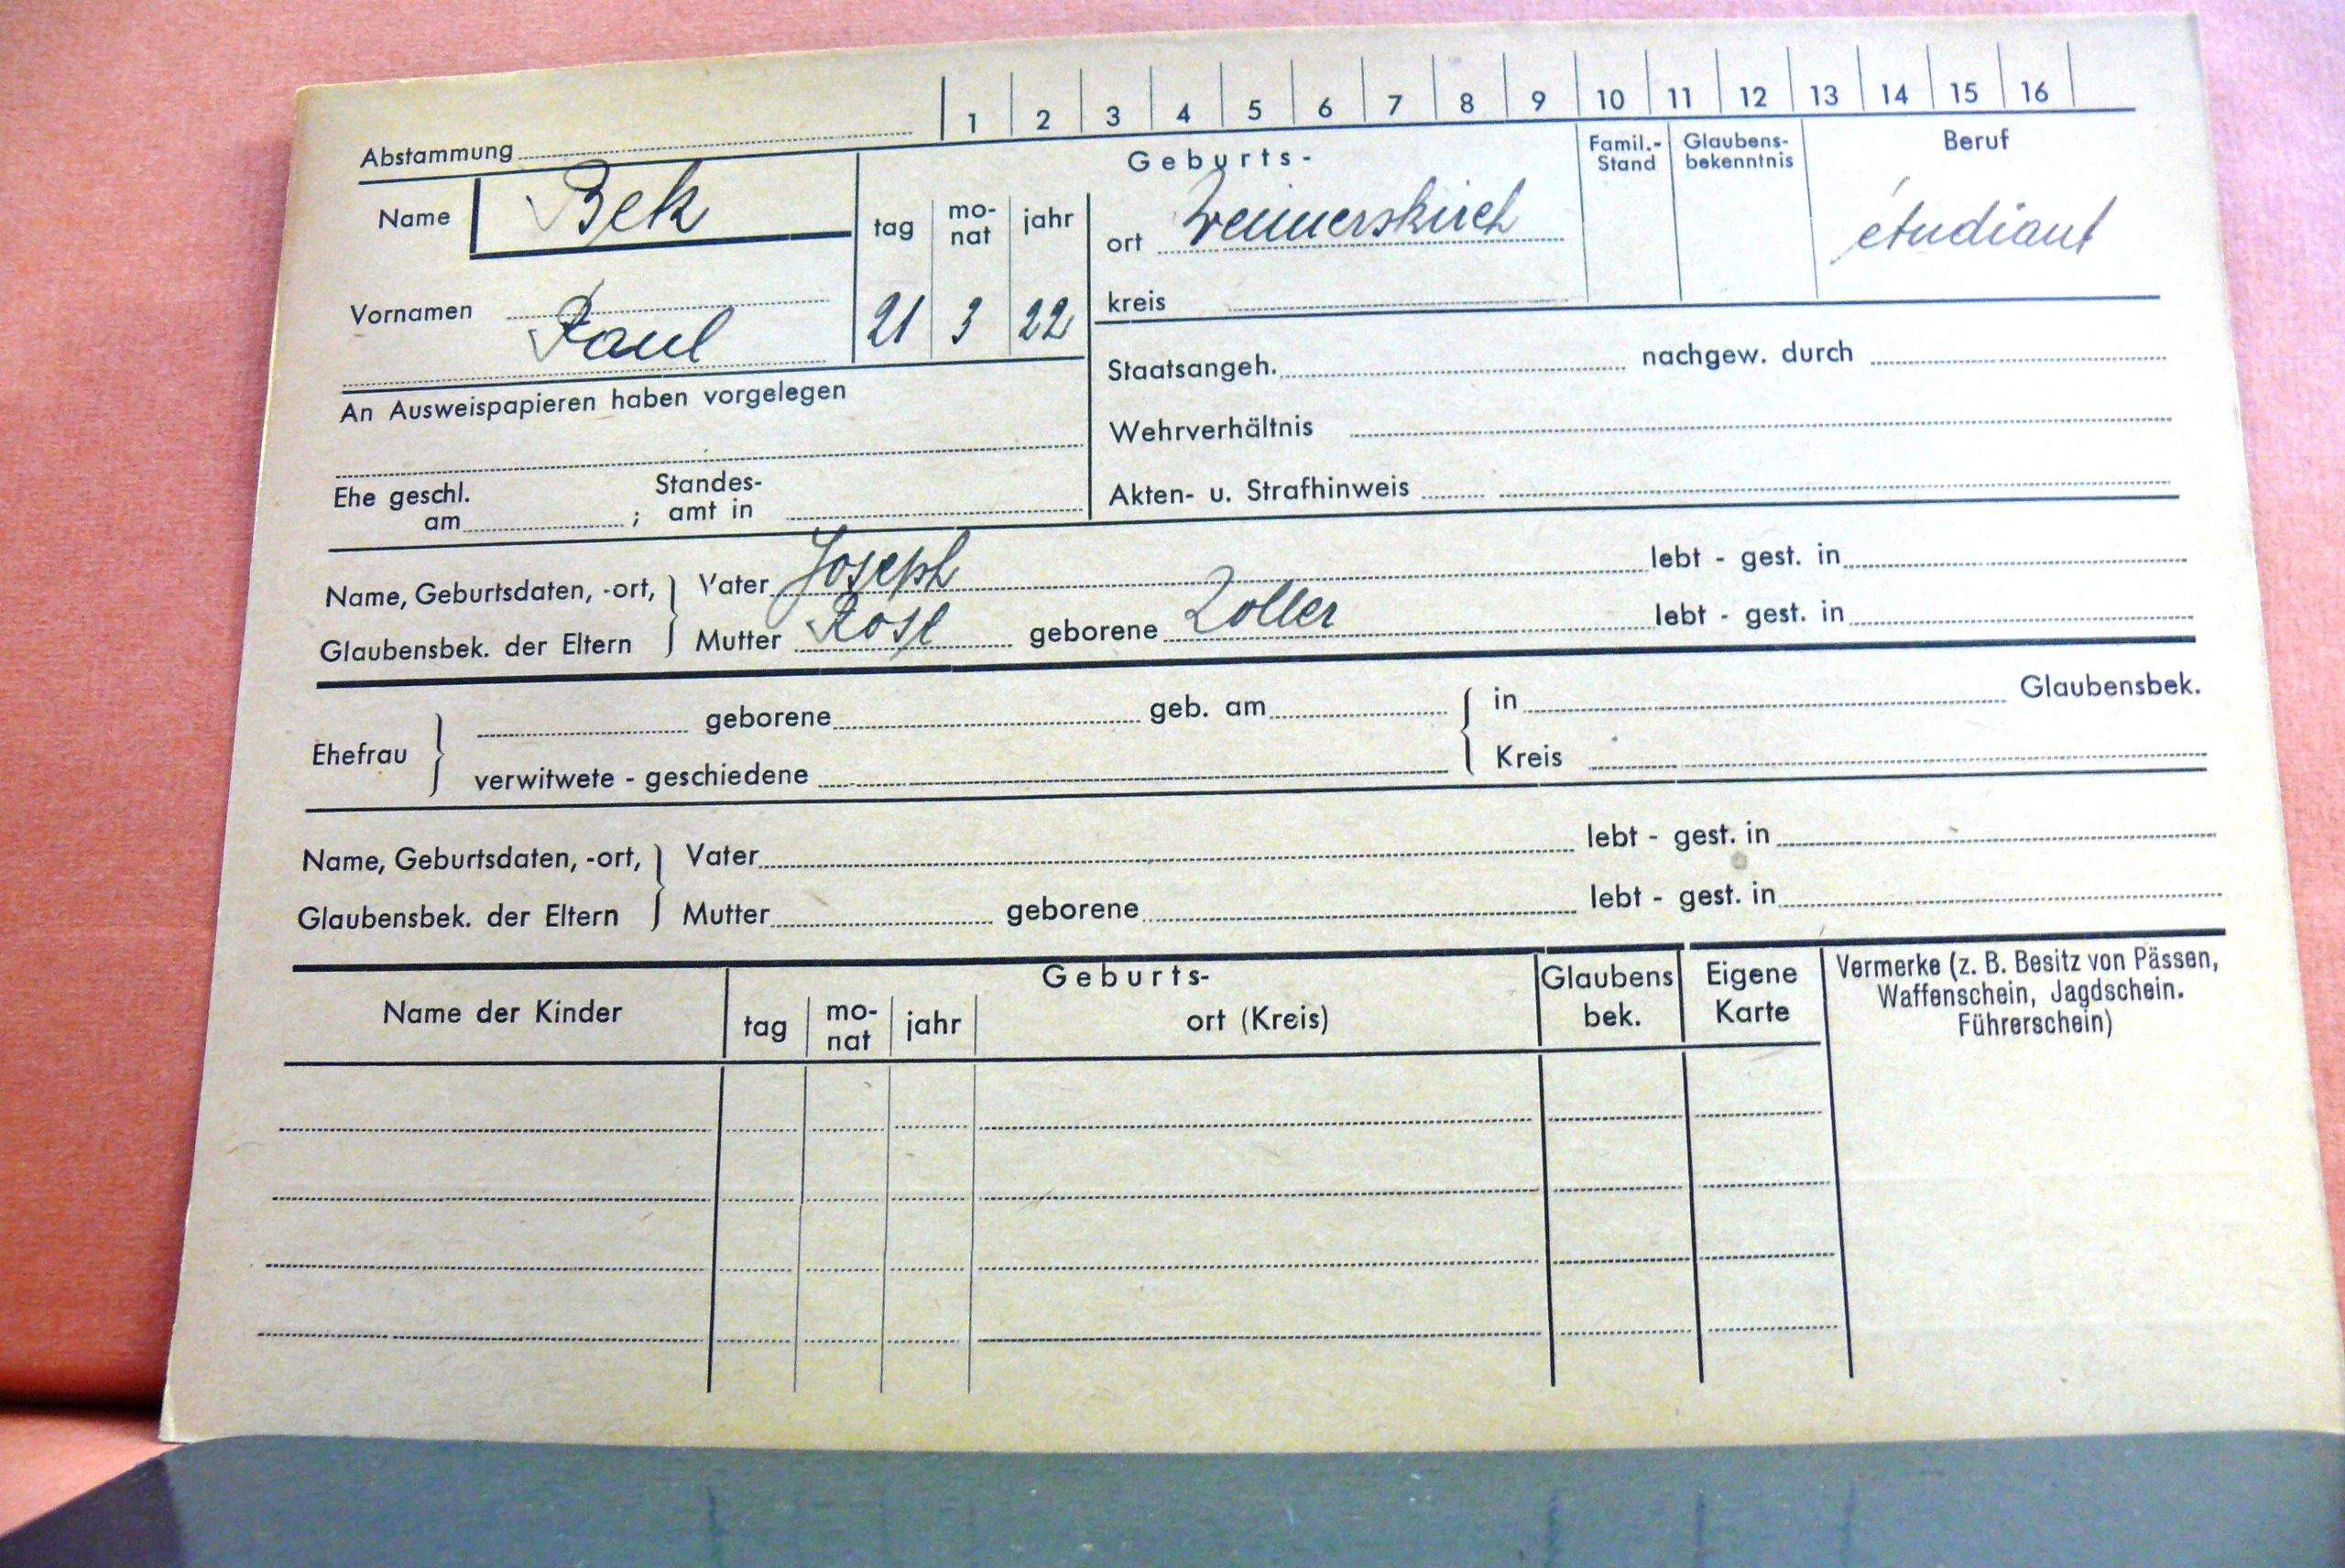 1 2 3 4 5 6 7 8 9 10 11 12 13 14 15 16
Abstammung
Name Bek
Geburts-
tag mo-nat jahr
ort Weimerskirch
Famil.-Stand
Glaubens-bekenntnis
Beruf
étudiant
Vornamen Paul
21 3 22
kreis
Staatsangeh. nachgew. durch
An Ausweispapieren haben vorgelegen
Wehrverhältnis
Ehe geschl. am ; Standes-amt in
Akten- u. Strafhinweis
Name, Geburtsdaten, -ort, Vater Joseph lebt - gest. in
Glaubensbek. der Eltern Mutter Rose geborene Zoller lebt - gest. in
Ehefrau geborene geb. am in Glaubensbek.
verwitwete - geschiedene Kreis
Name, Geburtsdaten, -ort, Vater lebt - gest. in
Glaubensbek. der Eltern Mutter geborene lebt - gest. in
Name der Kinder
Geburts-
tag mo-nat jahr ort (Kreis)
Glaubens bek.
Eigene Karte
Vermerke (z. B. Besitz von Pässen,
Waffenschein, Jagdschein.
Führerschein)